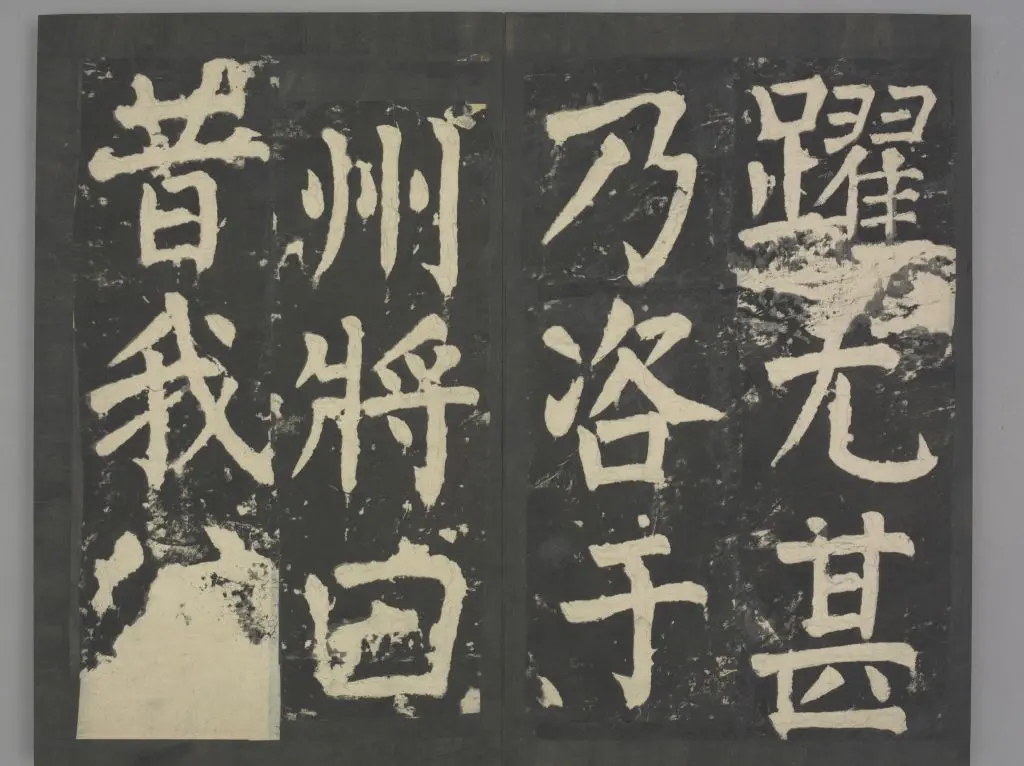 躍尤甚
乃咨于
州將曰
昔我